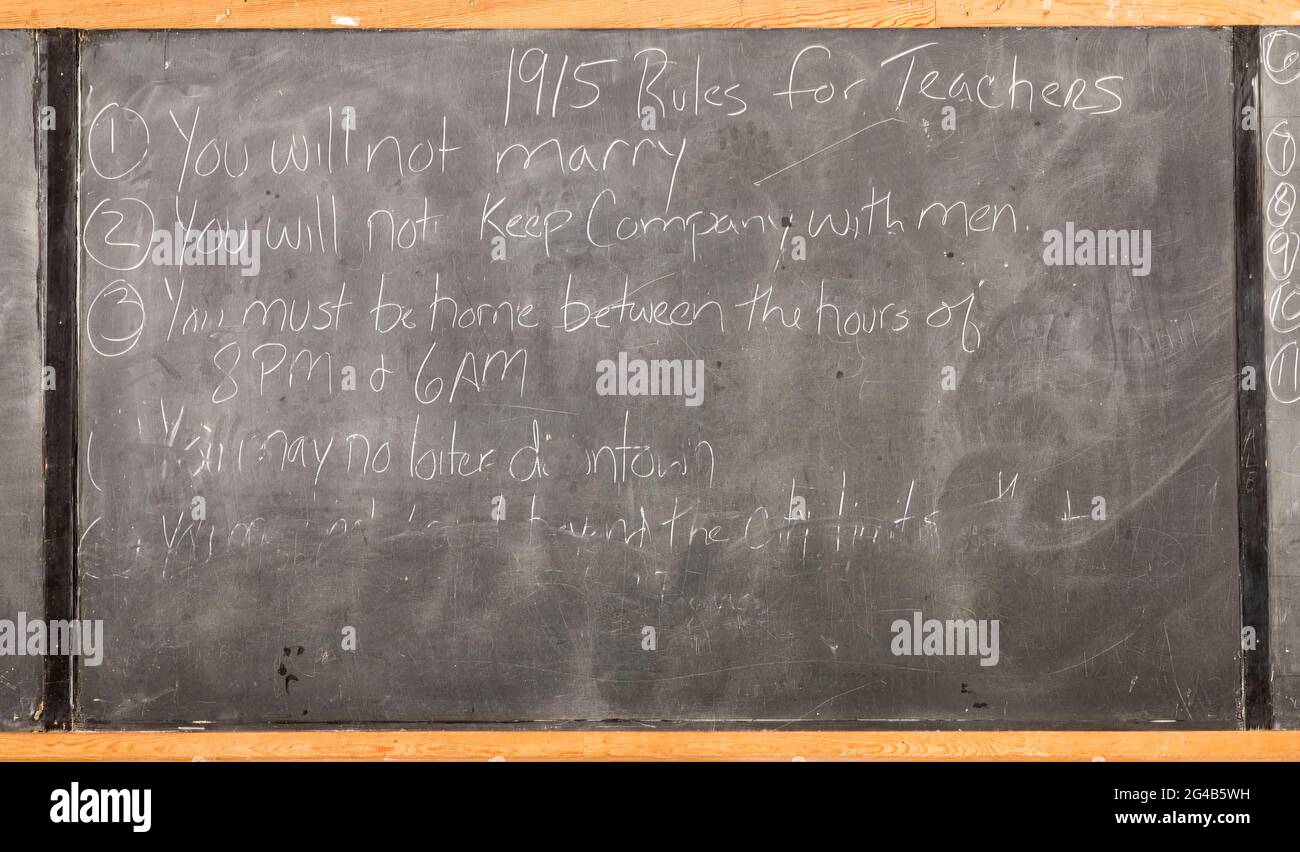 1915 Rules for Teachers
① You will not marry
② You will not Keep Company with men.
③ You must be home between the hours of
8 PM & 6 AM
You may no loiter downtown
the City limits
⑥
⑦
⑧
⑨
⑩
⑪
ALB
alamy
alamy
alamy
alamy
alamy
alamy
alamy
Image ID: 2G4B5WH
www.alamy.com